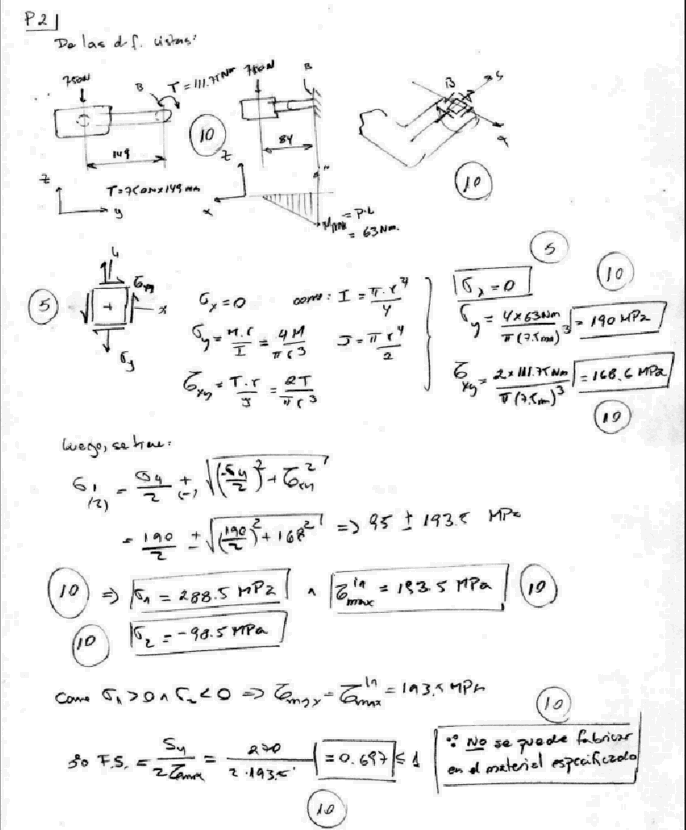 P2|
De las d.f. vistas:
750N B T = 111.75 Nm 750N B
149 10 84
z T = 750N × 149 mm z x
y
M max = P·L
= 63 Nm.
B
10
5 σy τxy x
σx = 0 como: I = π·r⁴/4
σy = M·r/I = 4M/πr³ J = πr⁴/2
τxy = T·r/J = 2T/πr³
5
σx = 0 10
σy = 4×63Nm/π(7.5mm)³ = 190 MPa
τxy = 2×111.75Nm/π(7.5mm)³ = 168.6 MPa
10
Luego, se tiene:
σ1(2) = σy/2 ±(-) √((-σy/2)² + τxy²)
= 190/2 ± √((190/2)² + 168²) => 95 ± 193.5 MPa
10 => σ1 = 288.5 MPa ∧ τ max 1n = 193.5 MPa 10
10 σ2 = -98.5 MPa
Como σ1 > 0 ∧ σ2 < 0 => τmax = τ max 1n = 193.5 MPa
10
∴ F.S. = Sy/2τmax = 270/2·193.5 = 0.697 ≤ 1
∵ No se puede fabricar
en el material especificado
10